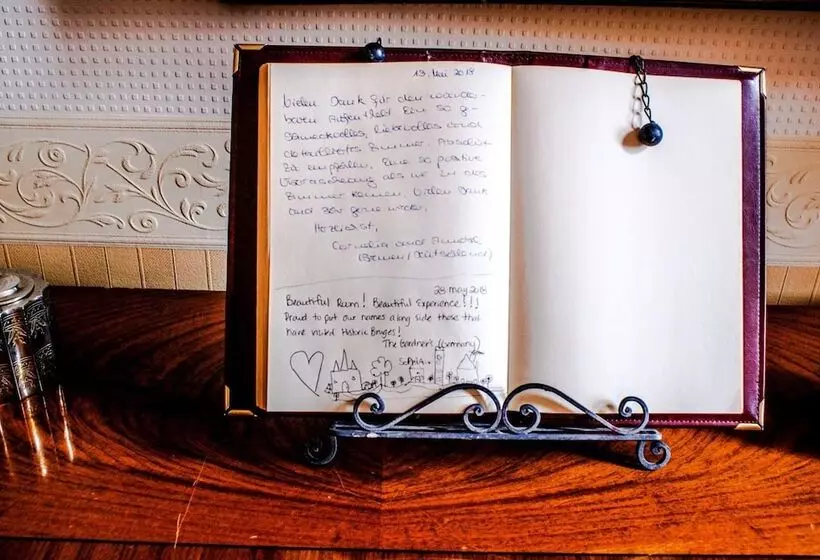 13. Mai 2018
Vielen Dank für den wunder-
baren Aufenthalt. Ein so g-
schmackvolles, liebevolles und
detailliertes Zimmer. Absolut
zu empfehlen. Eine so positive
Überraschung als wir in das
Zimmer kamen. Vielen Dank
und sehr gerne wieder.
Herzlichst,
Cornelia und
(Bremen / Deutschland)
28 May 2018
Beautiful Room! Beautiful Experience!!!
Proud to put our names along side those that
have visited Historic Bruges!
The Gardner's (Germany)